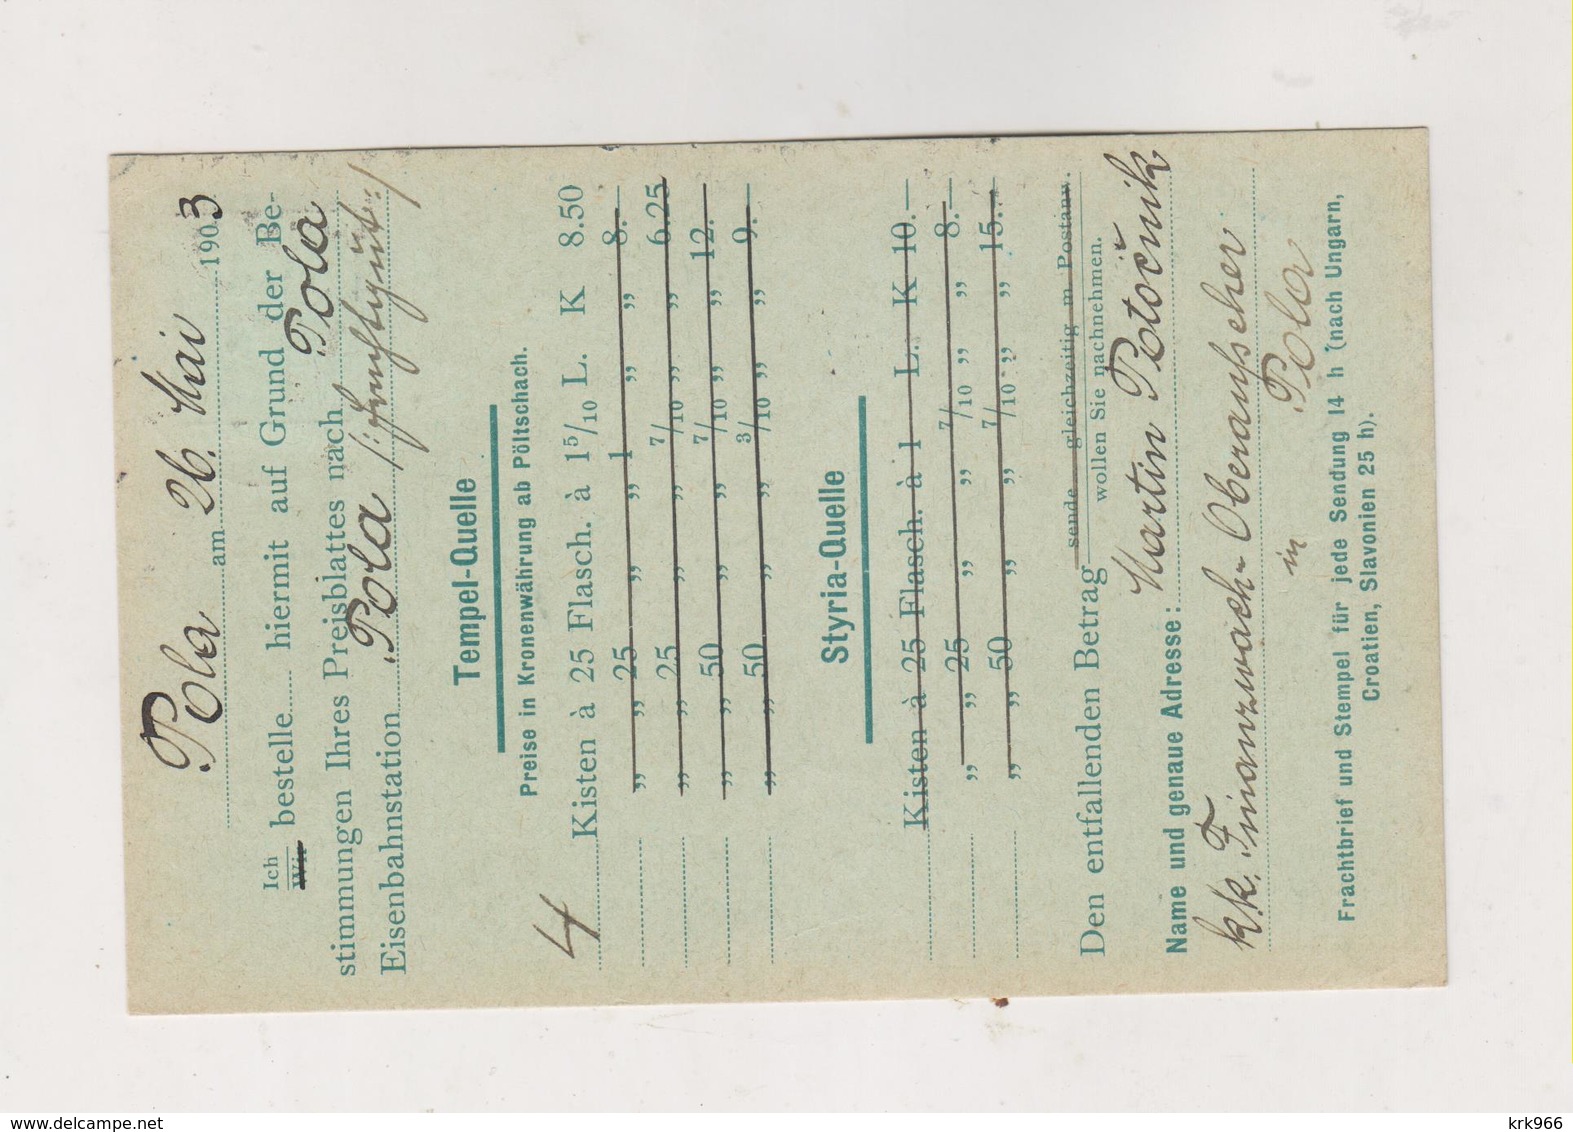 Pola am 26. Mai 1903
Ich
Wir bestelle hiermit auf Grund der Be-
stimmungen Ihres Preisblattes nach Pola
Eisenbahnstation Pola
Tempel-Quelle
Preise in Kronenwährung ab Pöltschach.
4 Kisten à 25 Flasch. à 1 5/10 L. K 8.50
„ „ 25 „ „ 1 „ „ 8.—
„ „ 25 „ „ 7/10 „ „ 6.25
„ „ 50 „ „ 7/10 „ „ 12.—
„ „ 50 „ „ 3/10 „ „ 9.—
Styria-Quelle
Kisten à 25 Flasch. à 1 L. K 10.—
„ „ 25 „ „ 7/10 „ „ 8.—
„ „ 50 „ „ 7/10 „ „ 15.—
Den entfallenden Betrag sende gleichzeitig m. Postanw.
wollen Sie nachnehmen.
Name und genaue Adresse: Martin Potočnik
k.k. Finanzwach-Oberaufseher
in Pola
Frachtbrief und Stempel für jede Sendung 14 h (nach Ungarn,
Croatien, Slavonien 25 h).
delcampe.net
krk966